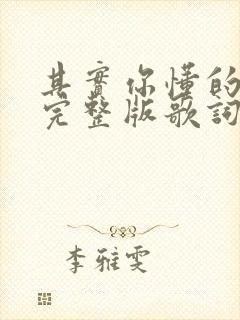 其實你懂的
完整版歌詞
李雅雯